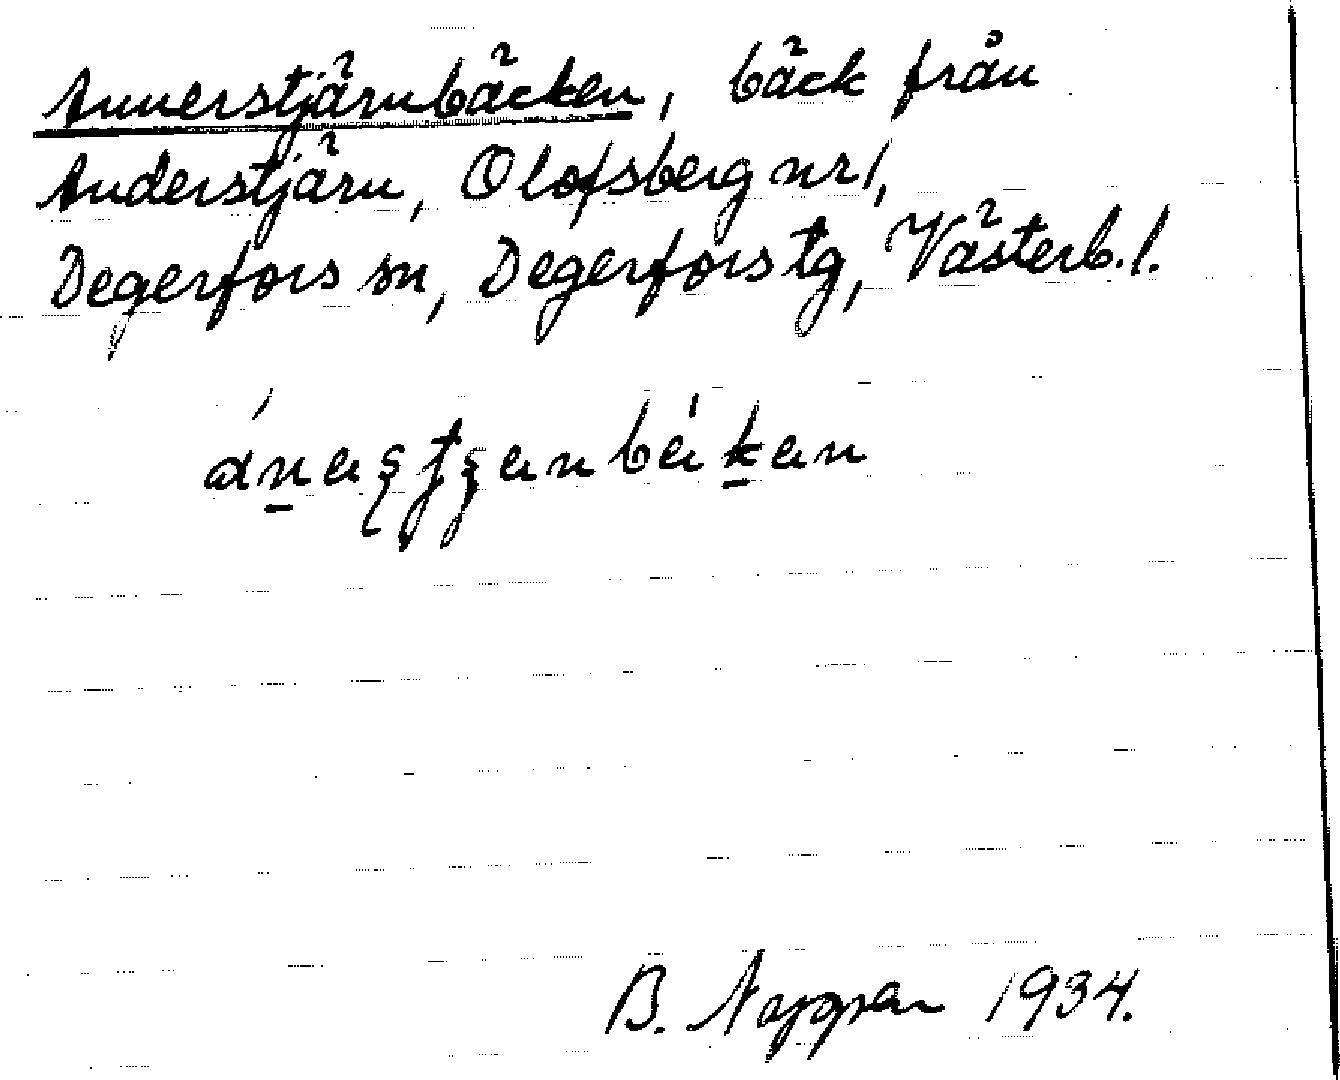 Annerstjärnbäcken, bäck från
Anderstjärn, Olofsberg nr 1,
Degerfors sn, Degerfors tg, Västerb. l.
B. 1934.